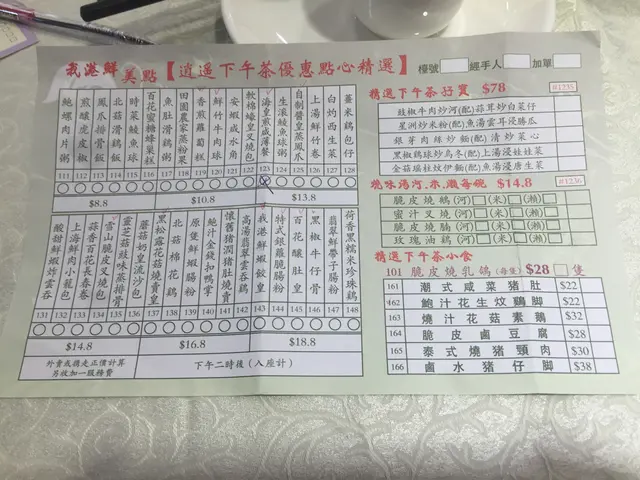 我港鮮 美點【逍遥下午茶優惠點心精選】
檯號 經手人 加單
鮑螺肉片粥 111
煎釀虎皮椒 112
鳳爪排骨飯 113
北菇滑鷄飯 114
時菜鯪魚球 115
百花蜜糖蜂巢糕 116
魚肚滑鷄粥 117
田園農家蒸粉果 118
香煎蘿蔔糕 119
鮮竹牛肉球 120
安蝦咸水角 121
軟棉蠔皇叉燒包 122
海皇煎咸薄餐 123
生滾鯪魚球粥 124
自制醬皇蒸鳳爪 125
上湯鮮竹卷 126
白灼西生菜 127
薑米鷄包仔 128
$8.8
$10.8
$13.8
酸甜鮮蝦炸雲吞 131
上海鮮肉小籠包 132
蒜香百花長春卷 133
雪山脆皮叉燒包 134
靈芝菇豉味蒸排骨 135
蘑菇奶皇流沙包 136
黑松露花菇燒賣皇 137
北菇棉花鷄 138
原隻鮮蝦腸粉 139
鮑汁金錢扣鴨掌 140
懷舊豬潤豬肚燒賣 141
高湯翡翠鮮蝦雲吞鷄 142
我港鮮蝦餃皇 143
特式銀蘿腸腸粉 144
百花釀豆皇 145
黑椒牛仔骨 146
翡翠鮮帶子腸粉 147
荷香黑糯米珍珠鷄 148
$14.8
$16.8
$18.8
外賣或攜走正價計算
另收加一服務費
下午二時後（入座計）
精選下午茶孖寶 $78 #1235
豉椒牛肉炒河(配)蒜茸炒白菜仔
星洲炒米粉(配)魚湯雲耳浸勝瓜
銀芽肉絲炒麵(配)清炒菜心
黑椒鷄球炒烏冬(配)上湯浸娃娃菜
金菇瑶柱炆伊麵(配)魚湯浸唐生菜
燒味湯河.米.瀨每碗 $14.8 #1236
脆皮燒鵝(河)(米)(瀨)
蜜汁叉燒(河)(米)(瀨)
脆皮燒腩(河)(米)(瀨)
玫瑰油鷄(河)(米)(瀨)
精選下午茶小食
101 脆皮燒乳鴿(每隻) $28 隻
161 潮式咸菜豬肚 $22
162 鮑汁花生炆鷄脚 $22
163 燒汁花菇素鵝 $32
164 脆皮鹵豆腐 $28
165 泰式燒豬頸肉 $30
166 鹵水豬仔脚 $38